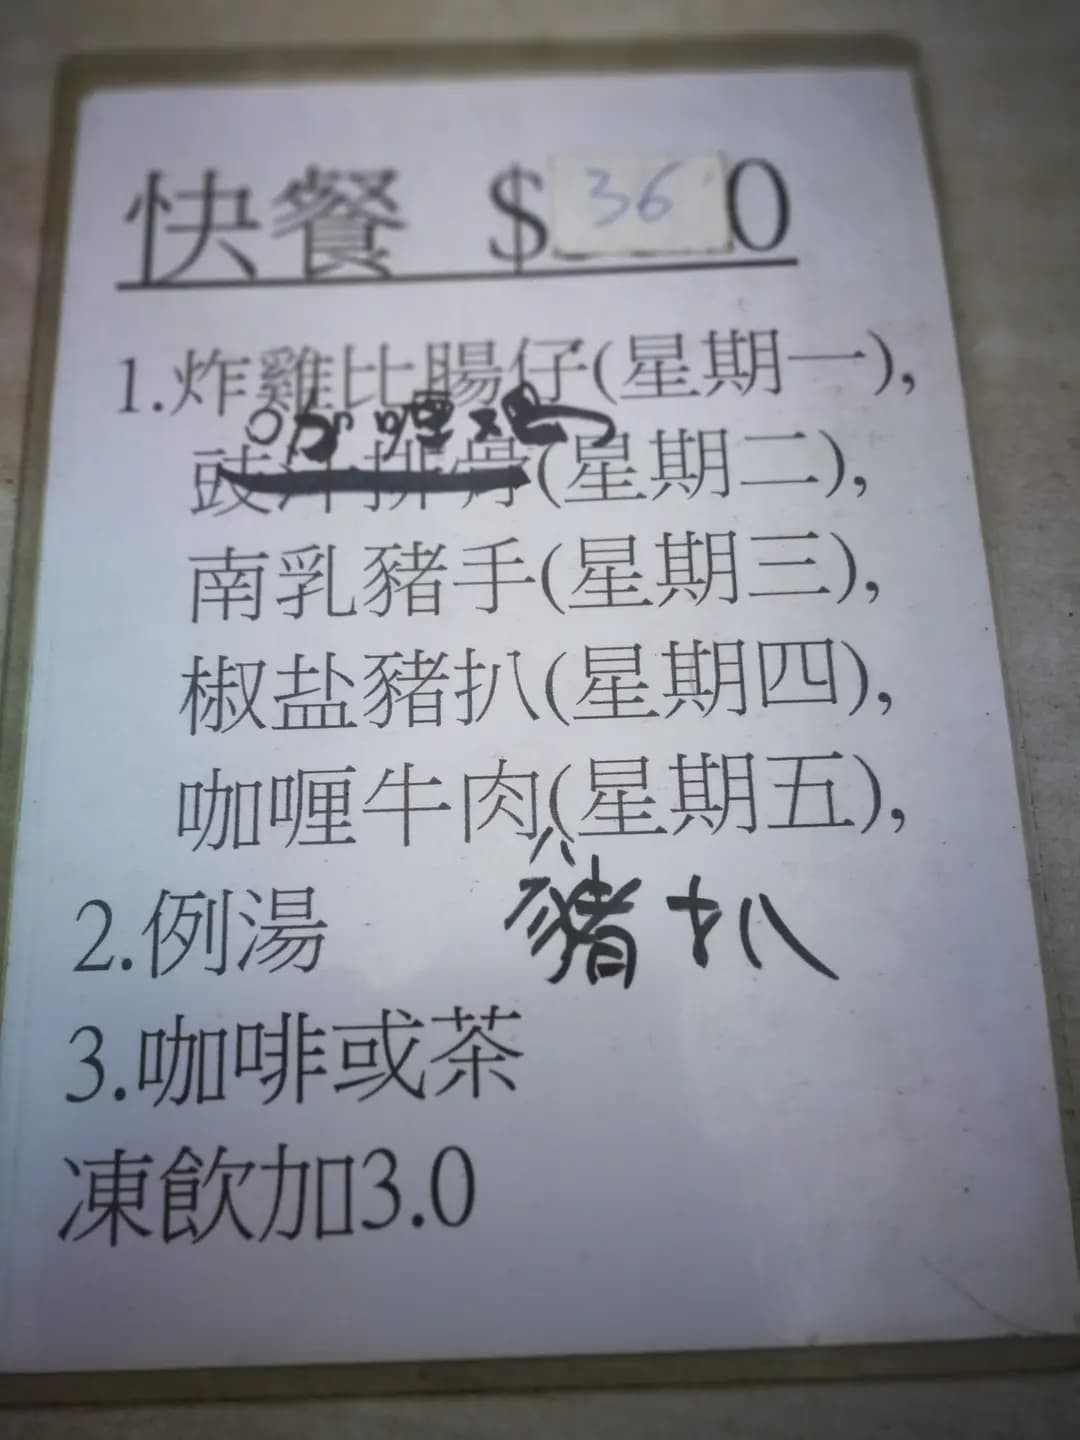 快餐 $36 0
1.炸雞比腸仔(星期一),
咖喱鸡
豉汁排骨(星期二),
南乳豬手(星期三),
椒盐豬扒(星期四),
咖喱牛肉(星期五),
豬扒
2.例湯
3.咖啡或茶
凍飲加3.0